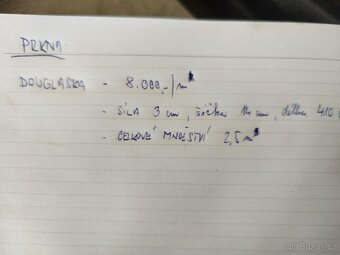 PRKNA:
DOUGLASKA - 8.000,-/m³
- SÍLA 3 cm, šířka 14 cm, délka 410
- CELKOVÉ MNOŽSTVÍ 2,5 m³